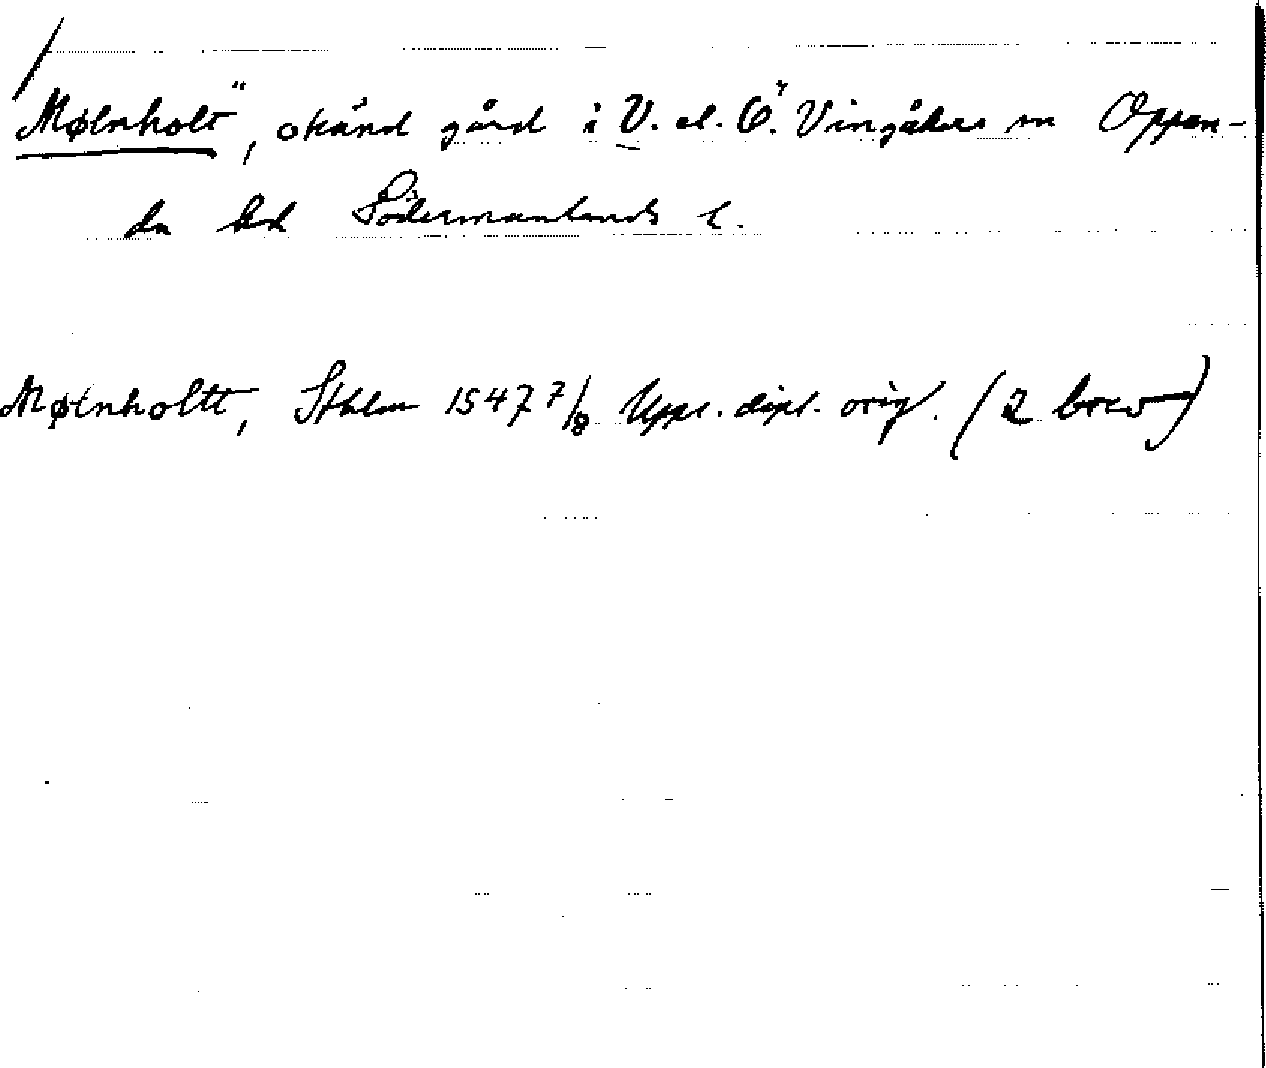 "Mølnholt", okänd gård i V. el. Ö. Vingåkers sn Oppun-
da hd Södermanlands l.
Mølnholtt, Sthlm 1547 7/8 Uppl. dipl. orig. (2 brev)